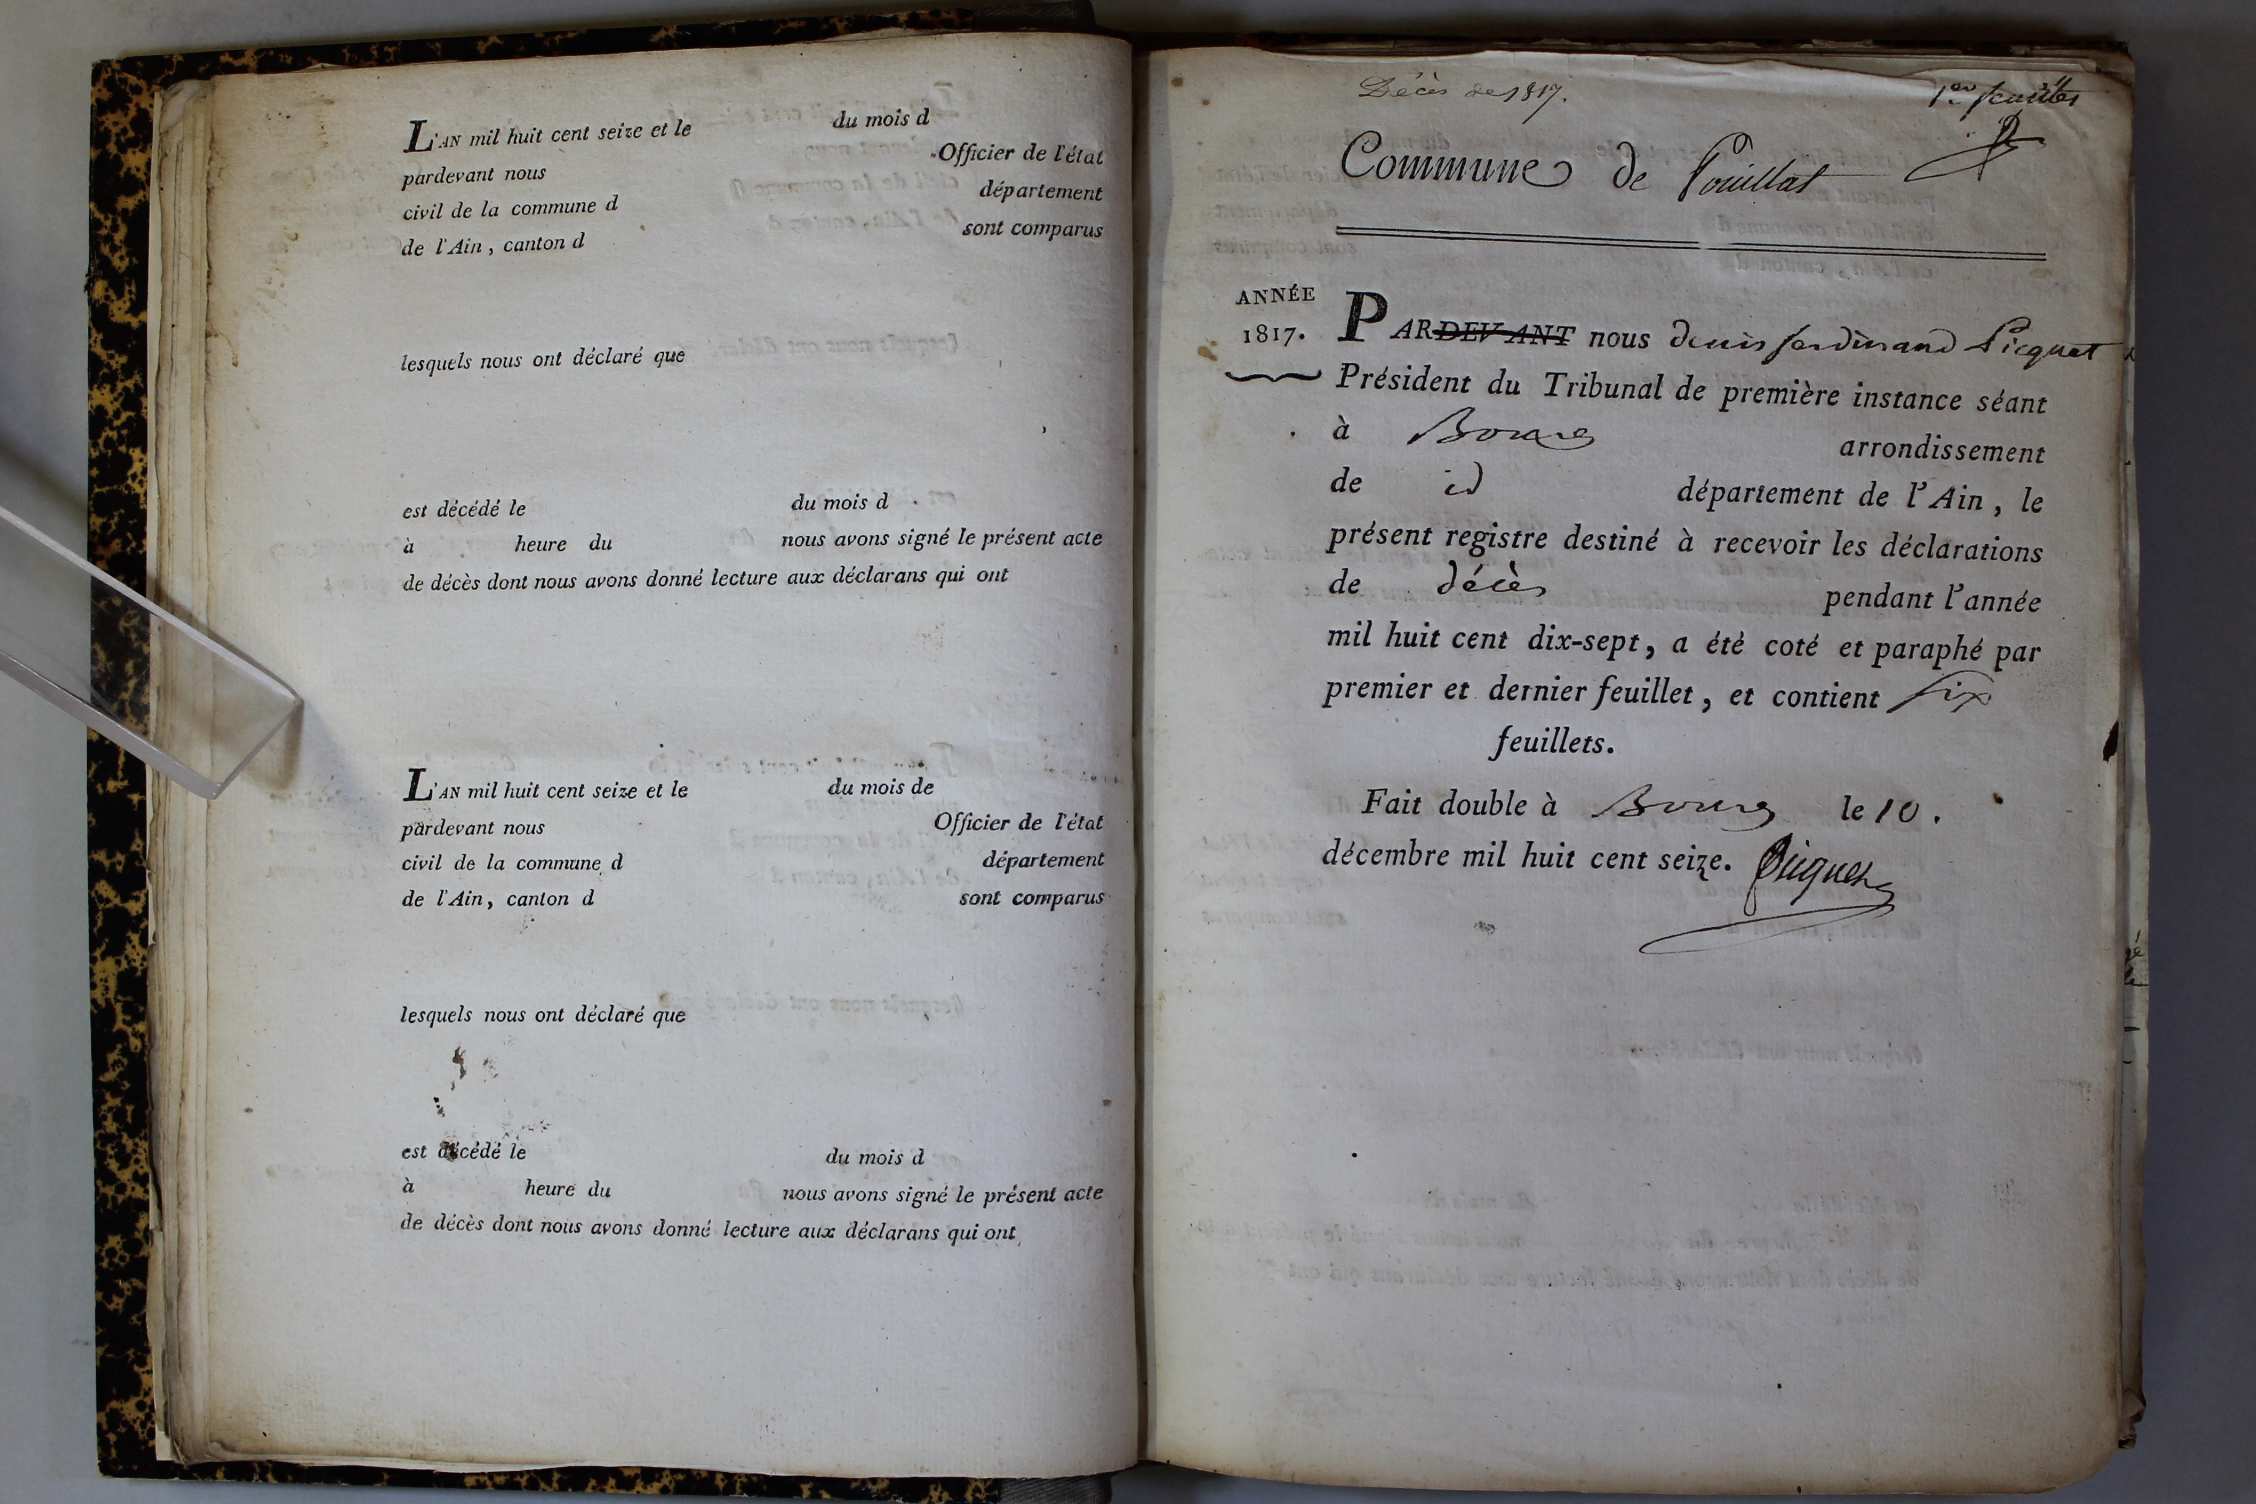 L'AN mil huit cent seize et le du mois d
pardevant nous Officier de l'état
civil de la commune d département
de l'Ain, canton d sont comparus
lesquels nous ont déclaré que
est décédé le du mois d
à heure du nous avons signé le présent acte
de décès dont nous avons donné lecture aux déclarans qui ont
L'AN mil huit cent seize et le du mois de
pardevant nous Officier de l'état
civil de la commune d département
de l'Ain, canton d sont comparus
lesquels nous ont déclaré que
est décédé le du mois d
à heure du nous avons signé le présent acte
de décès dont nous avons donné lecture aux déclarans qui ont
Décès de 1817.
1er feuillet
Commune de Pouillat
ANNÉE
1817.
PARDEVANT nous denis ferdinand Picquet
Président du Tribunal de première instance séant
à Bourg arrondissement
de id département de l'Ain, le
présent registre destiné à recevoir les déclarations
de décès pendant l'année
mil huit cent dix-sept, a été coté et paraphé par
premier et dernier feuillet, et contient six
feuillets.
Fait double à Bourg le 10.
décembre mil huit cent seize. Picquet